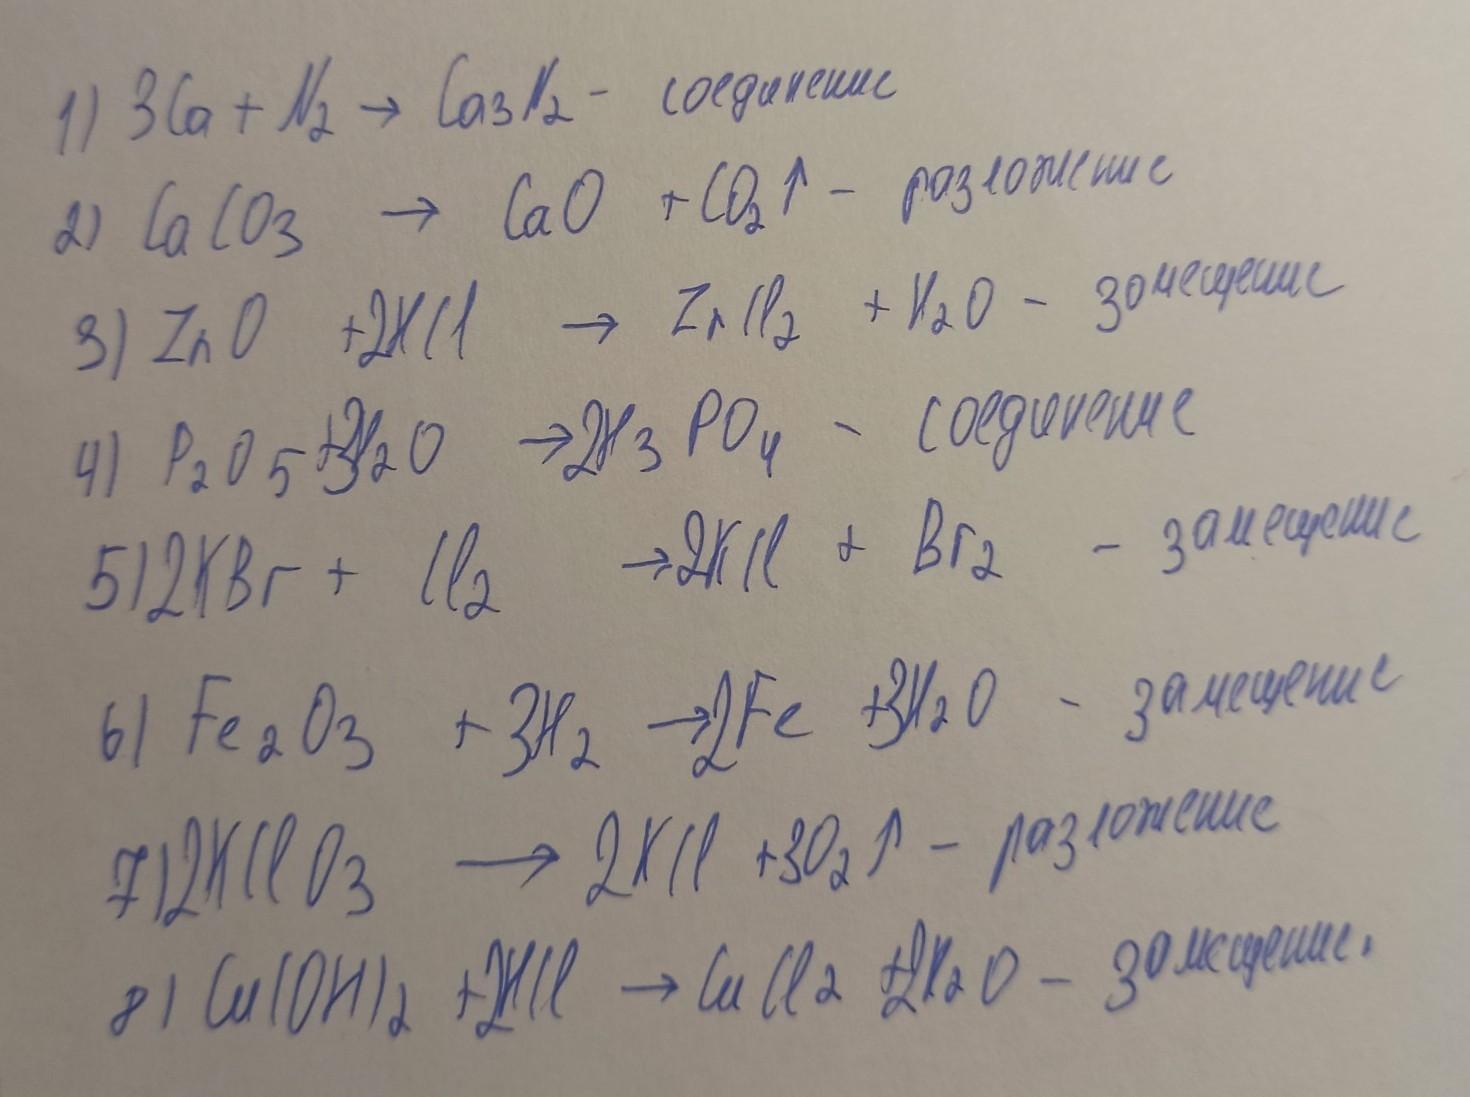 1) 3Ca + N2 → Ca3N2 - соединение
2) CaCO3 → CaO + CO2↑ - разложение
3) ZnO +2HCl → ZnCl2 + H2O - замещение
4) P2O5+3H2O →2H3PO4 - соединение
5) 2KBr + Cl2 →2KCl + Br2 - замещение
6) Fe2O3 + 3H2 →2Fe +3H2O - замещение
7) 2KClO3 → 2KCl +3O2↑ - разложение
8) Cu(OH)2 +2HCl → CuCl2 +2H2O - замещение.